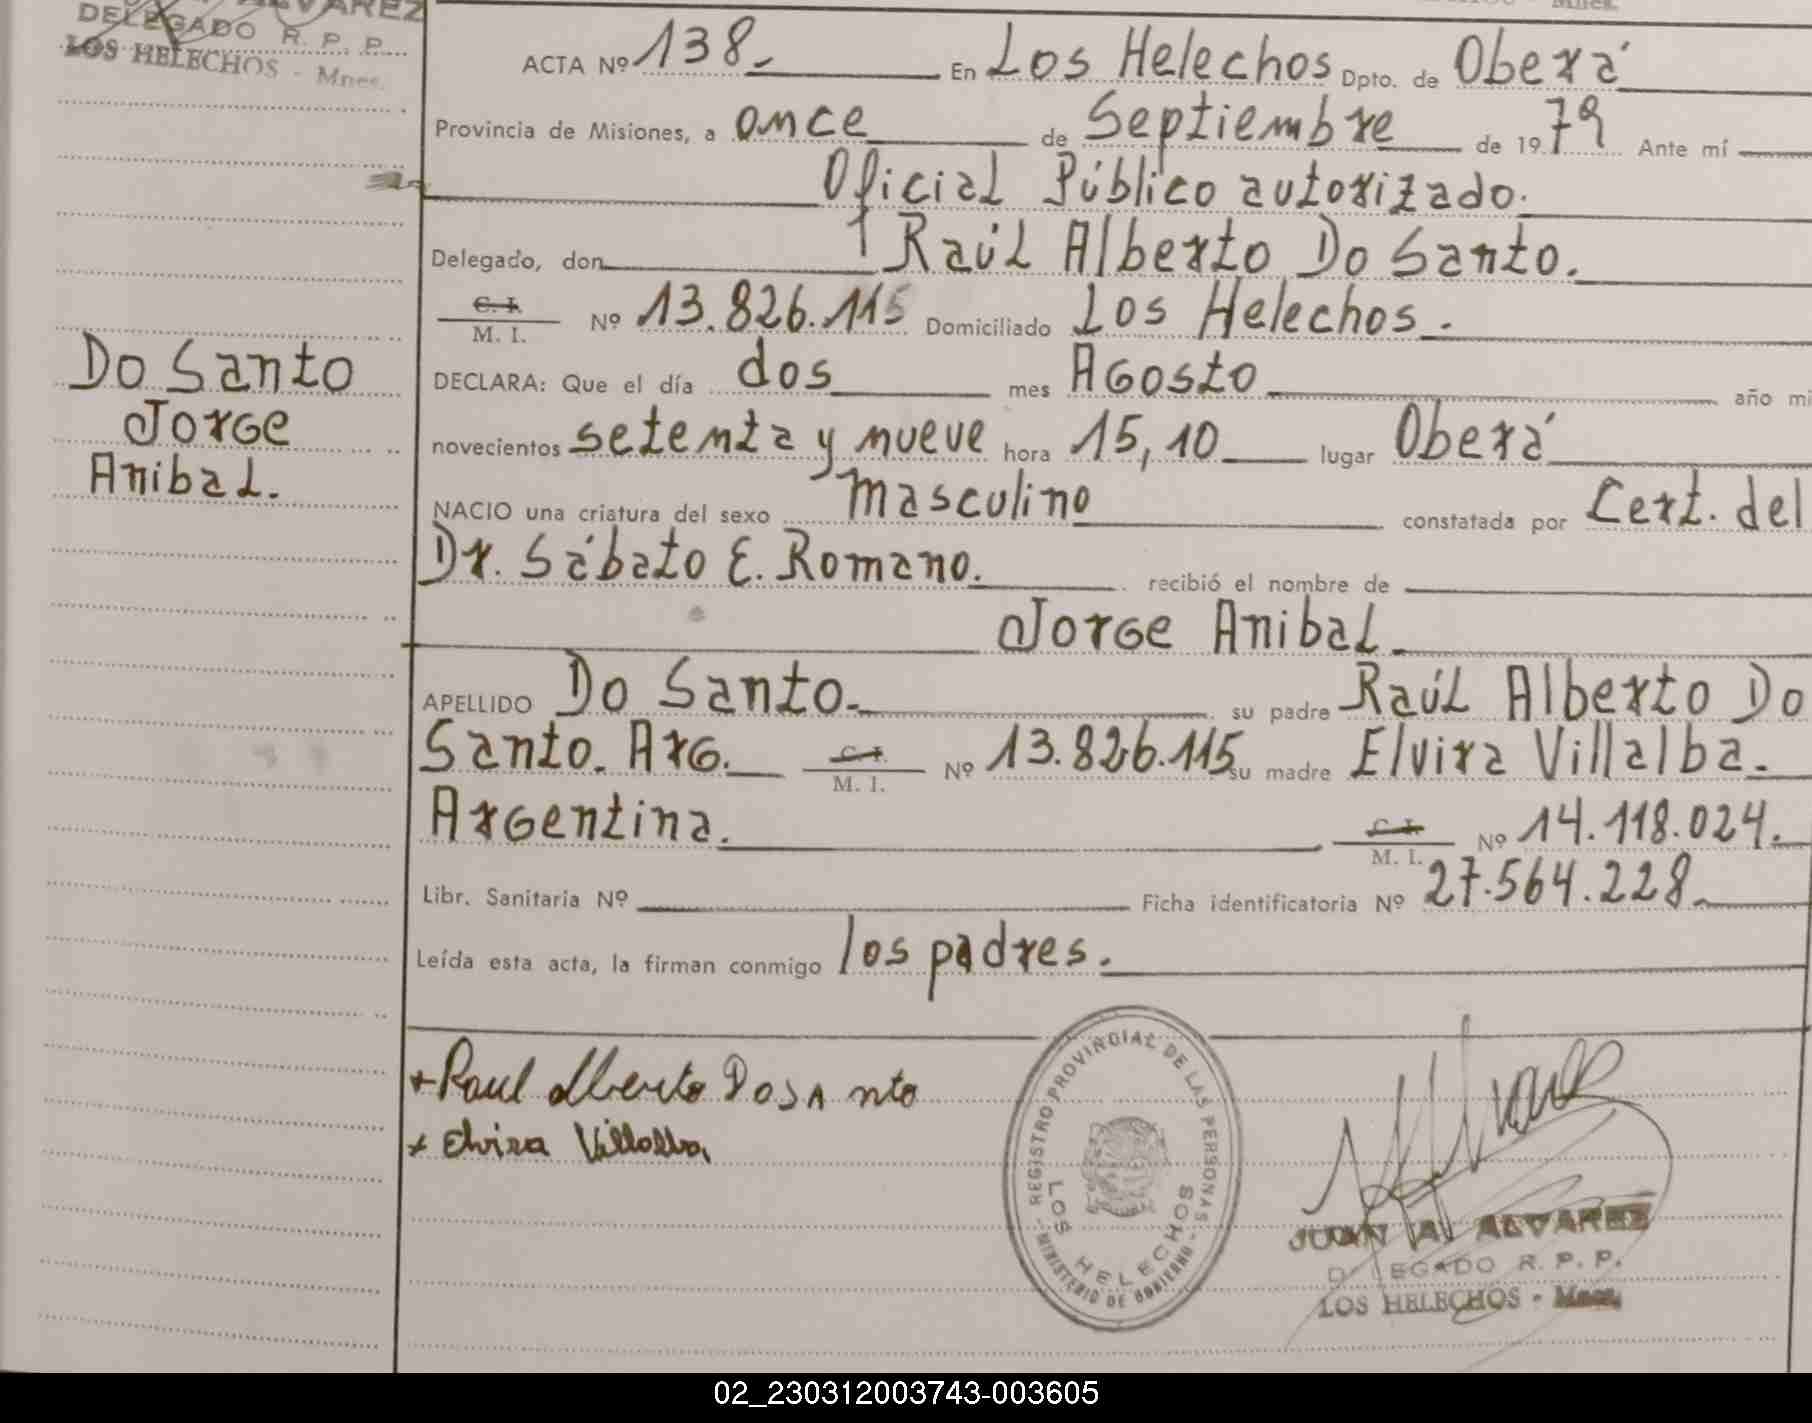 ALVAREZ
DELEGADO R. P. P.
LOS HELECHOS - Mnes.
Mnes.
ACTA Nº 138.- En Los Helechos Dpto. de Oberá
Provincia de Misiones, a once de Septiembre de 1979 Ante mí
Oficial Público autorizado.
Delegado, don Raúl Alberto Do Santo.
C. I.
M. I. Nº 13.826.115 Domiciliado Los Helechos.
Do Santo
Jorge
Anibal.
DECLARA: Que el día dos mes Agosto año mi
novecientos setenta y nueve hora 15,10 lugar Oberá
NACIO una criatura del sexo Masculino constatada por Cert. del
Dr. Sábato E. Romano. recibió el nombre de
Jorge Anibal.
APELLIDO Do Santo. su padre Raúl Alberto Do
Santo. Arg. C. I.
M. I. Nº 13.826.115 su madre Elvira Villalba.
Argentina. C. I.
M. I. Nº 14.118.024.
Libr. Sanitaria Nº Ficha identificatoria Nº 27.564.228.
Leída esta acta, la firman conmigo los padres.
+ Raul Alberto DoSAnto
+ Elvira Villalba
REGISTRO PROVINCIAL DE LAS PERSONAS
LOS HELECHOS
MINISTERIO DE GOBIERNO
JUAN A. ALVAREZ
DELEGADO R. P. P.
LOS HELECHOS - Mnes.
02_230312003743-003605